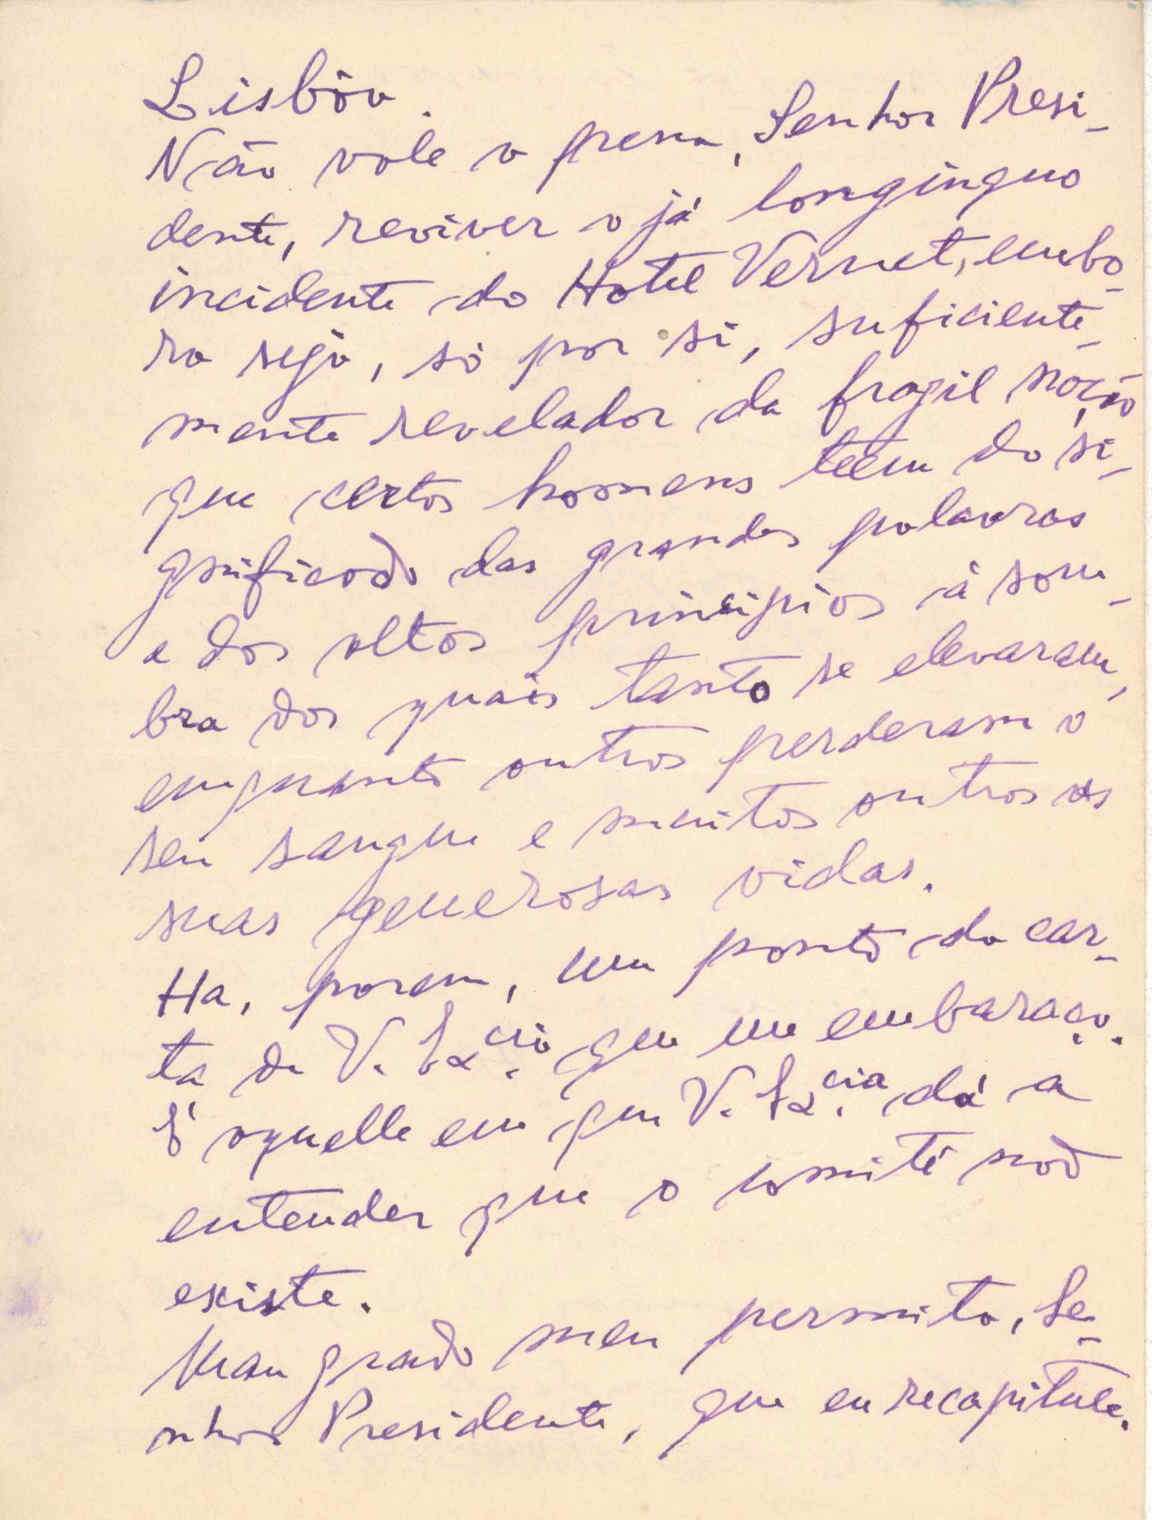 Lisbôa.
Não vale a pena, Senhor Presi-
dente, reviver o já longinquo
incidente do Hotel Vernet, embo-
ra seja, só por si, suficiente-
mente revelador da fragil noção
que certos homens teem do si-
gnificado das grandes palavras
e dos altos principios á som-
bra dos quais tanto se elevaram,
emquanto outros perderam o
seu sangue e muitos outros as
suas generosas vidas.
Ha, porem, um ponto da car-
ta de V. Ex.cia que me embaraça.
É aquelle em que V. Ex.cia dá a
entender que o comité não
existe.
Mau grado meu permita, Se-
nhor Presidente, que eu recapitule.